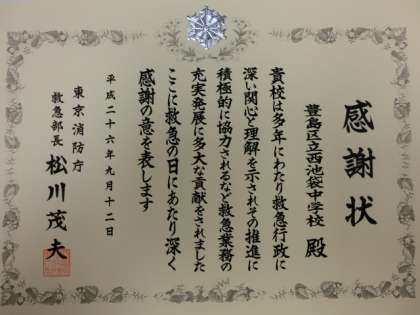 感謝状
豊島区立西池袋中学校 殿
貴校は多年にわたり救急行政に
深い関心と理解を示されその推進に
積極的に協力されるなど救急業務の
充実発展に多大な貢献をされました
ここに救急の日にあたり深く
感謝の意を表します
平成二十六年九月十二日
東京消防庁
救急部長 松川茂夫